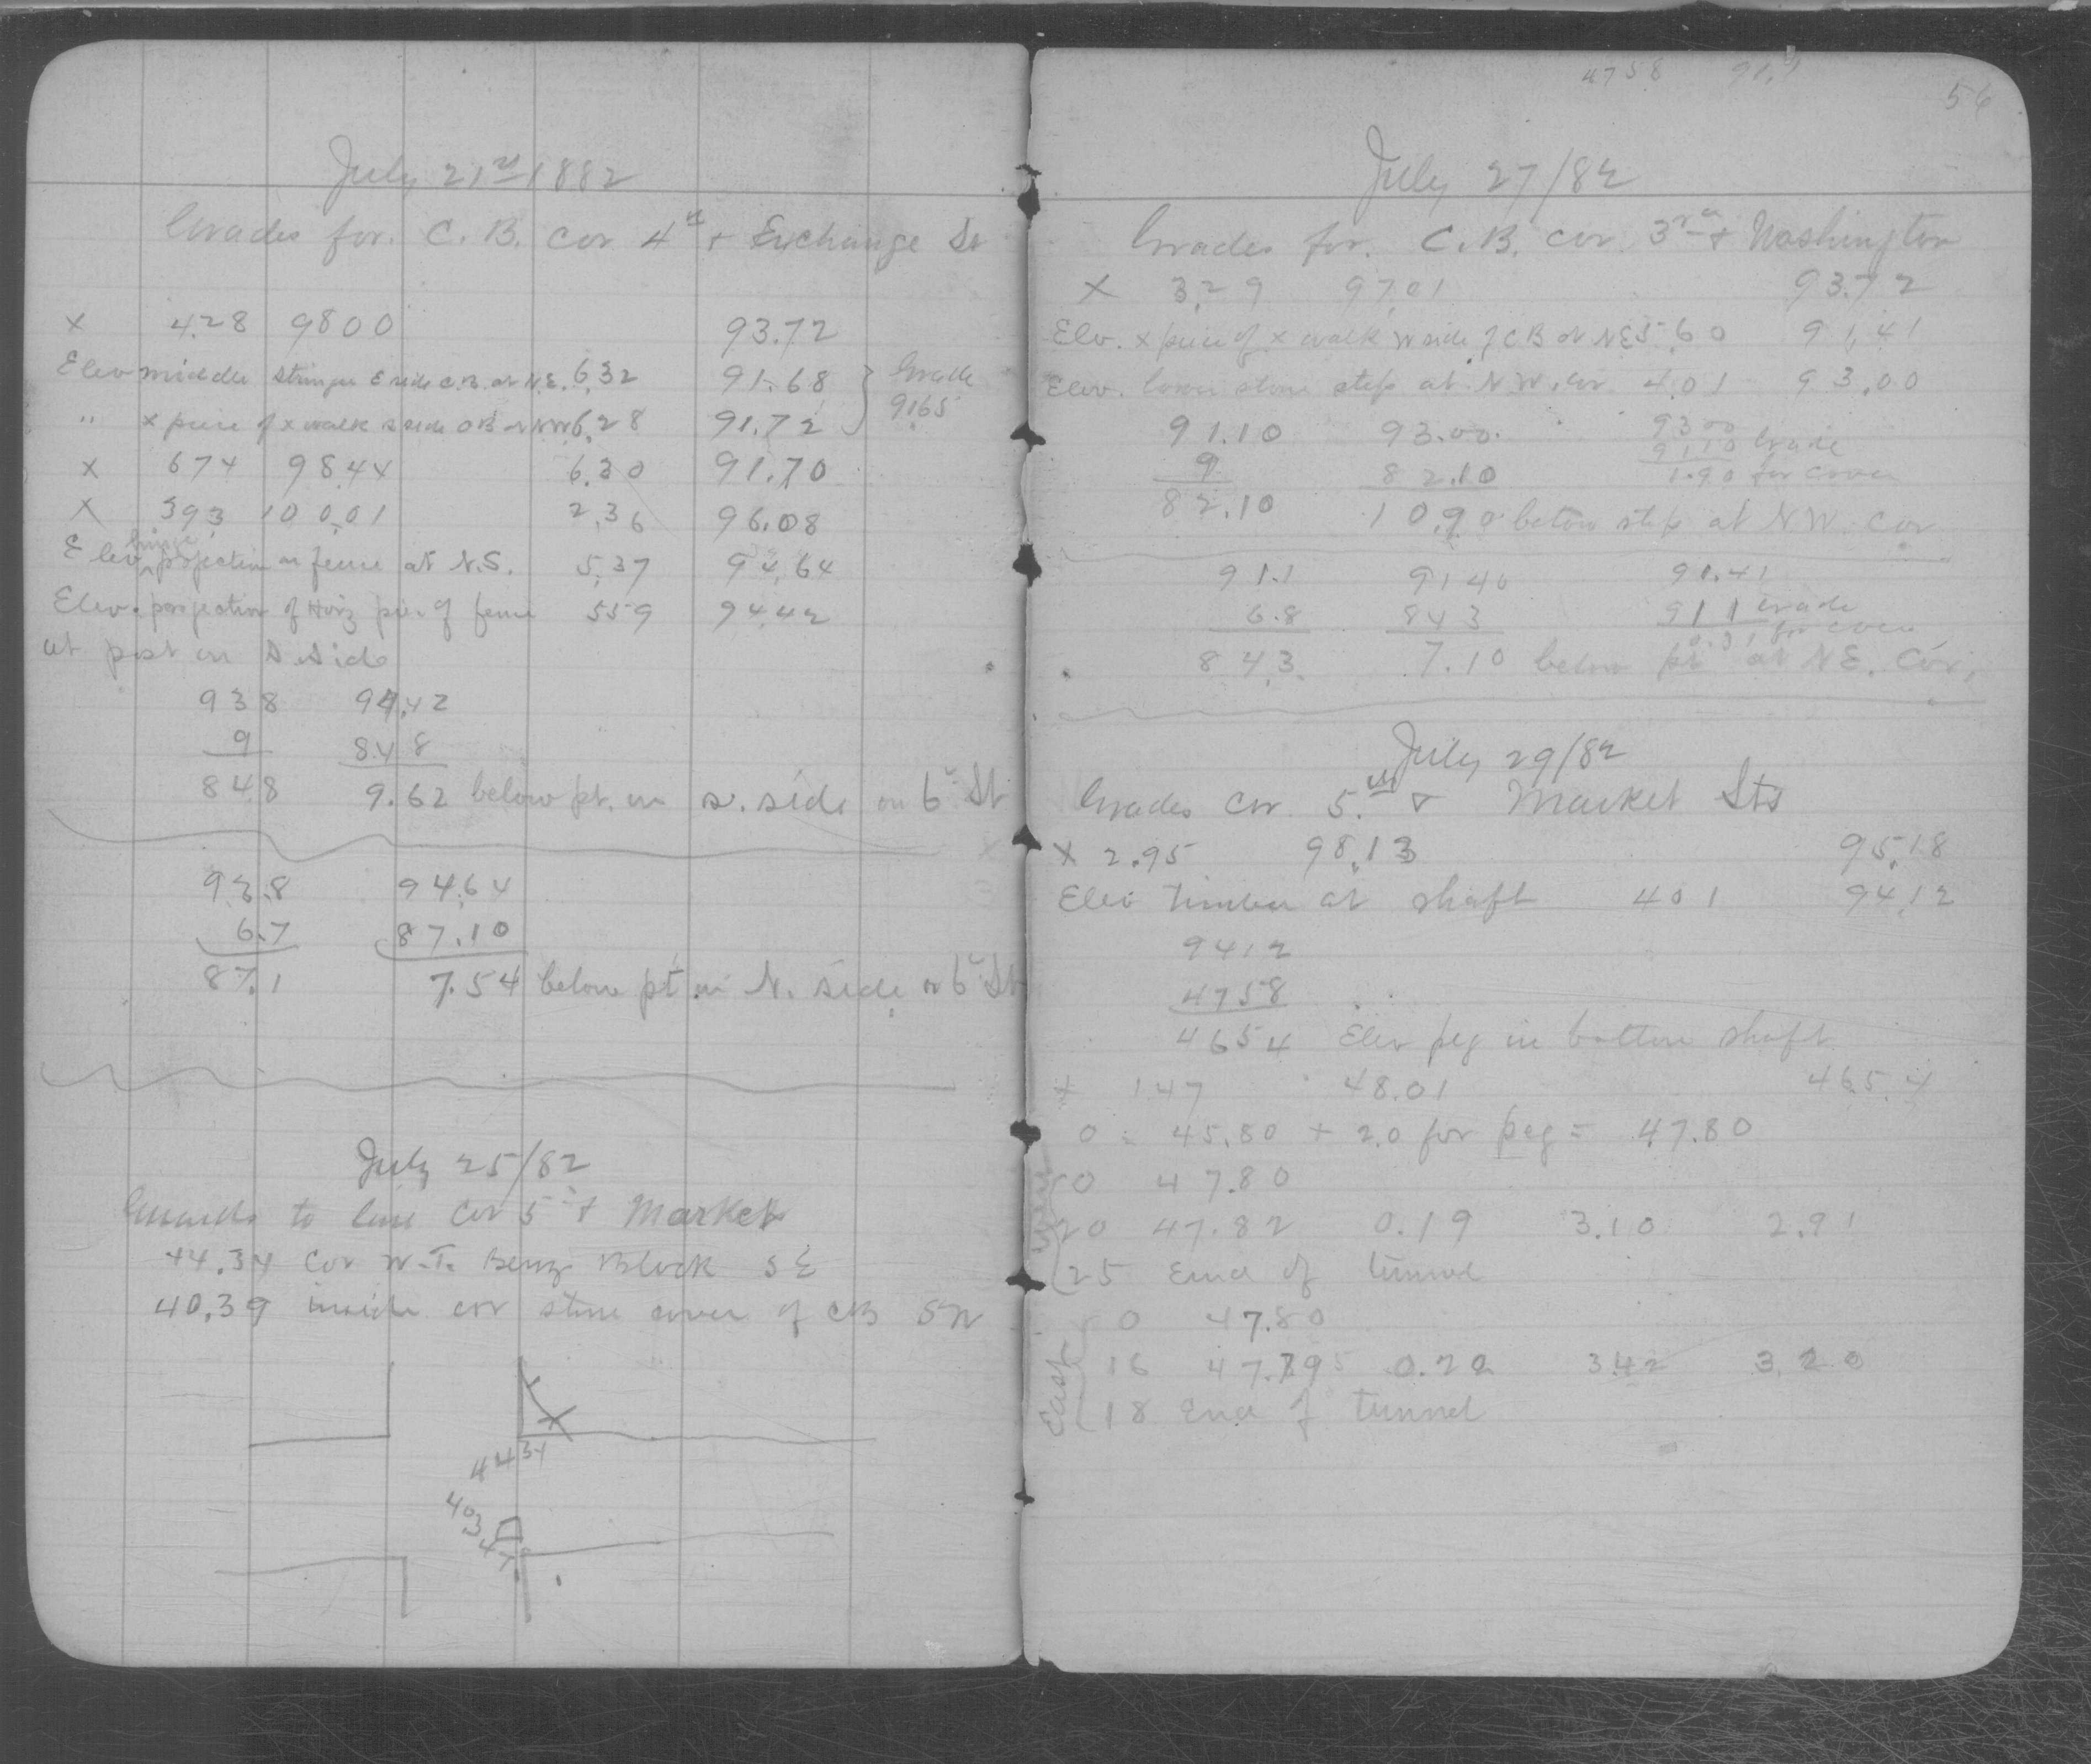 July 21st 1882
Grades for. C. B. cor 4th + Exchange St
x 4.28 98 00 93.72
Elev middle stringer E side C.B. at N.E. 6.32 91.68 } Grade
" x piece of x walk s side CB at NW 6.28 91.72 9165
x 674 98.44 6.30 91.70
x 393 100.01 2.36 96.08
hinge
Elev. projection on fence at N.S. 5.37 94.64
Elev. projection of Horiz piece of fence 559 94.42
at post on S. side
938 94.42
9 84 8
848 9.62 below pt. on s. side on 6th St
93.8 94.64
6.7 87.10
87.1 7.54 below pt. on N. side on 6th St
July 25/82
to line cor 5th + Market
44.34 cor W.T. Block SE
40.39 inside cor stone cover of CB SW
44 34
40 3
47
4758 91.1
56
July 27/82
Grades for. C.B. cor. 3rd + Washington
x 3.29 97.01 93.72
Elev. x piece of x walk W side of CB at NE 5.60 91.41
Elev. lower stone step at N.W. cor. 4.01 93.00
91.10 93.00. 93 00
9 82.10 91.10 Grade
82.10 10.90 below step at NW. cor 1.90 for cover
91.1 91 40 91.41
6.8 843 91 1 Grade
84.3. 7.10 below pt at NE. Cor. 0.31 for cover
July 29/82
Grades cor 5.th + Market Sts
x 2.95 98.13 95.18
Elev Timber at shaft 401 94.12
9412
4758
4654 Elev peg in bottom shaft
+ 1 47 48.01 46.54
0 = 45.80 + 2.0 for peg = 47.80
0 47.80
20 47.82 0.19 3.10 2.91
25 End of tunnel
0 47.80
East
16 47.795 0.22 3.42 3.20
18 End of tunnel